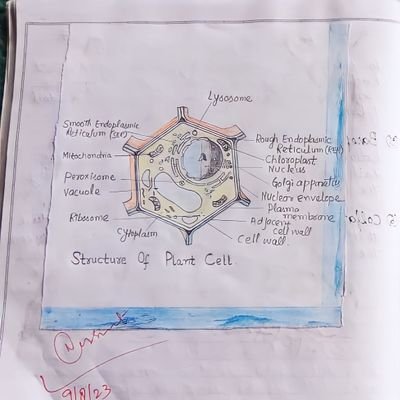 Lysosome
Smooth Endoplasmic
Reticulum (SER)
Mitochondria
Peroxisome
Vacuole
Ribosome
Cytoplasm
Rough Endoplasmic
Reticulum (RER)
Chloroplast
Nucleus
Golgi apparatus
Nuclear envelope
Plasma
membrane
Adjacent
cell wall
Cell wall.
Structure Of Plant Cell
9/8/23